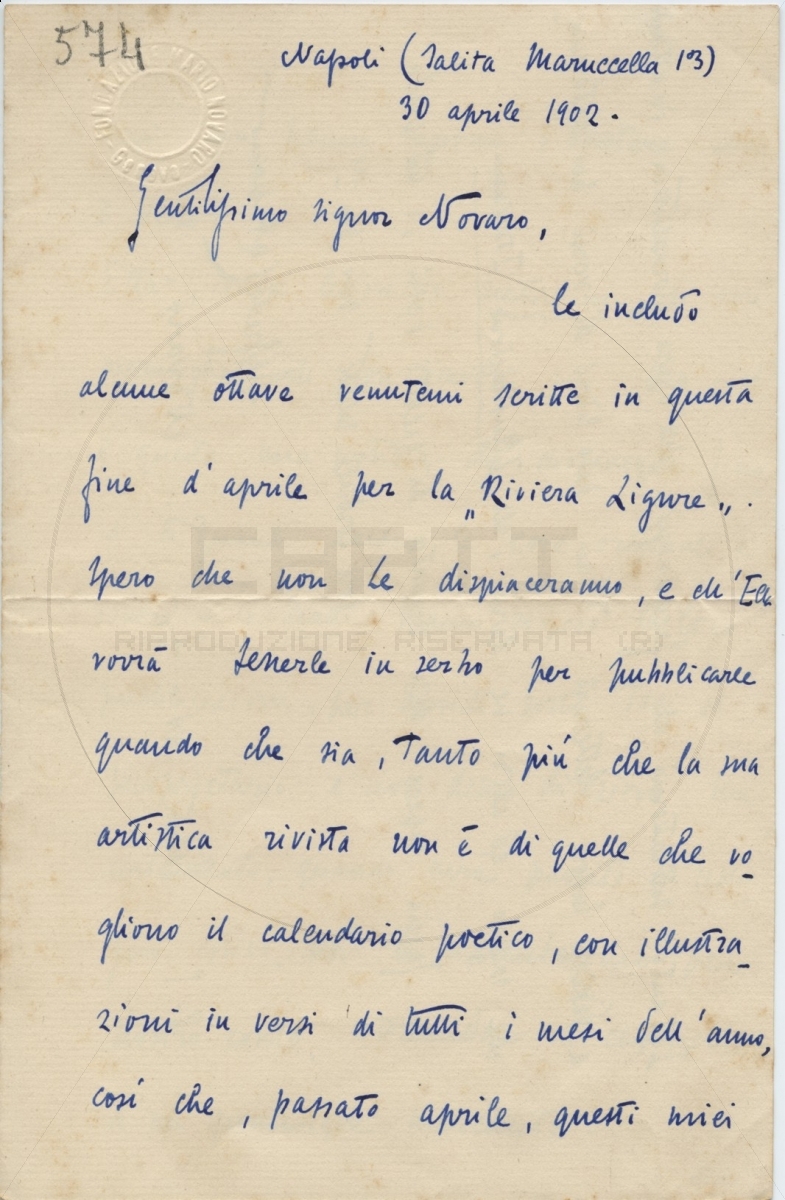 574
Napoli (Salita Maruccella 13)
30 aprile 1902.
Gentilissimo signor Novaro,
le includo
alcune ottave venutemi scritte in questa
fine d'aprile per la „Riviera Ligure„.
Spero che non Le dispiaceranno, e ch'Ella
vorrà tenerle in serbo per pubblicarle
quando che sia, tanto più che la sua
artistica rivista non è di quelle che vo_
gliono il calendario poetico, con illustra_
zioni in versi di tutti i mesi dell'anno,
così che, passato aprile, questi miei
FONDAZIONE MARIO NOVARO
CAPTI
RIPRODUZIONE RISERVATA (R)